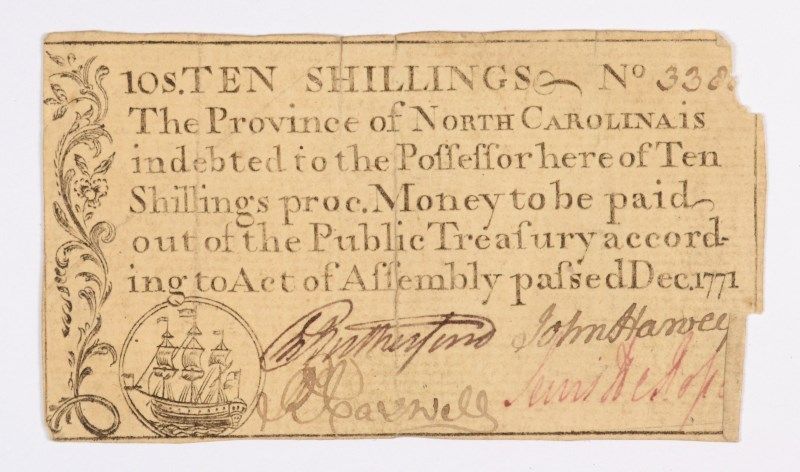 10S. TEN SHILLINGS No 338
The Province of NORTH CAROLINA is
indebted to the Poſſeſſor here of Ten
Shillings proc. Money to be paid
out of the Public Treaſury accord-
ing to Act of Aſſembly paſsed Dec. 1771
Rutherfurd John Harvey
R Caswell Lewis De Ros